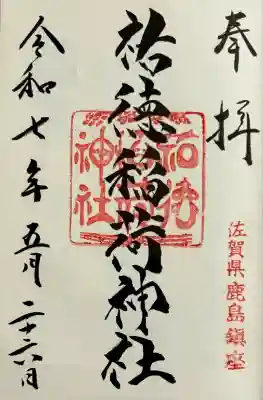 奉拝
佐賀県鹿島鎮座
祐徳稲荷神社
祐徳稲荷神社
令和七年五月二十六日